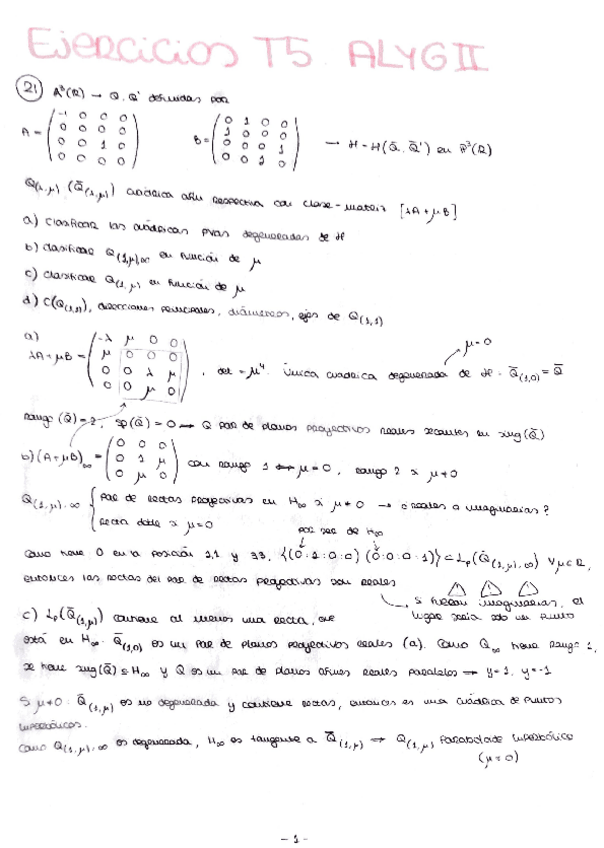 Ejercicios T5 ALYGII
21 A³(R) → Q, Q' definidas por
A = ( -1 0 0 0 / 0 0 0 0 / 0 0 1 0 / 0 0 0 0 ) B = ( 0 1 0 0 / 1 0 0 0 / 0 0 0 1 / 0 0 1 0 ) → H = H(Q̄, Q̄') en P³(R)
Q(λ,μ) (Q̄(λ,μ)) cuádrica afín respectiva con clase-matriz [λA + μB]
a) Clasificar las cuádricas pvas degeneradas de H
b) Clasificar Q(1,μ),∞ en función de μ
c) Clasificar Q(1,μ) en función de μ
d) C(Q(1,1)), direcciones principales, diámetros, ejes de Q(1,1)
a) μ=0
λA + μB = ( -λ μ 0 0 / μ 0 0 0 / 0 0 λ μ / 0 0 μ 0 ), det = μ⁴. Única cuádrica degenerada de H: Q̄(1,0) = Q̄
rango (Q̄) = 2, sp(Q̄) = 0 → Q par de planos proyectivos reales secantes en sing(Q̄)
b) (A + μB)∞ = ( 0 0 0 / 0 1 μ / 0 μ 0 ) con rango 1 ↔ μ = 0, rango 2 si μ ≠ 0
Q(1,μ),∞ { Par de rectas proyectivas en H∞ si μ ≠ 0 → ¿reales o imaginarias?
Recta doble si μ = 0
por ser de H∞
Como tiene 0 en la posición 1,1 y 3,3, {(0:1:0:0) (0:0:0:1)} ⊂ Lp(Q̄(1,μ),∞) ∀μ∈R,
entonces las rectas del par de rectas proyectivas son reales
Si fueran imaginarias, el
lugar sería solo un punto
c) Lp(Q̄(1,μ)) contiene al menos una recta, que
está en H∞. Q̄(1,0) es un par de planos proyectivos reales (a). Como Q∞ tiene rango 1,
se tiene sing(Q̄) ⊆ H∞ y Q es un par de planos afines reales paralelos → y=1, y=-1
Si μ ≠ 0: Q̄(1,μ) es no degenerada y contiene rectas, entonces es una cuádrica de puntos
hiperbólicos.
Como Q(1,μ),∞ es degenerada, H∞ es tangente a Q̄(1,μ) → Q(1,μ) Paraboloide hiperbólico
(μ ≠ 0)
- 1 -